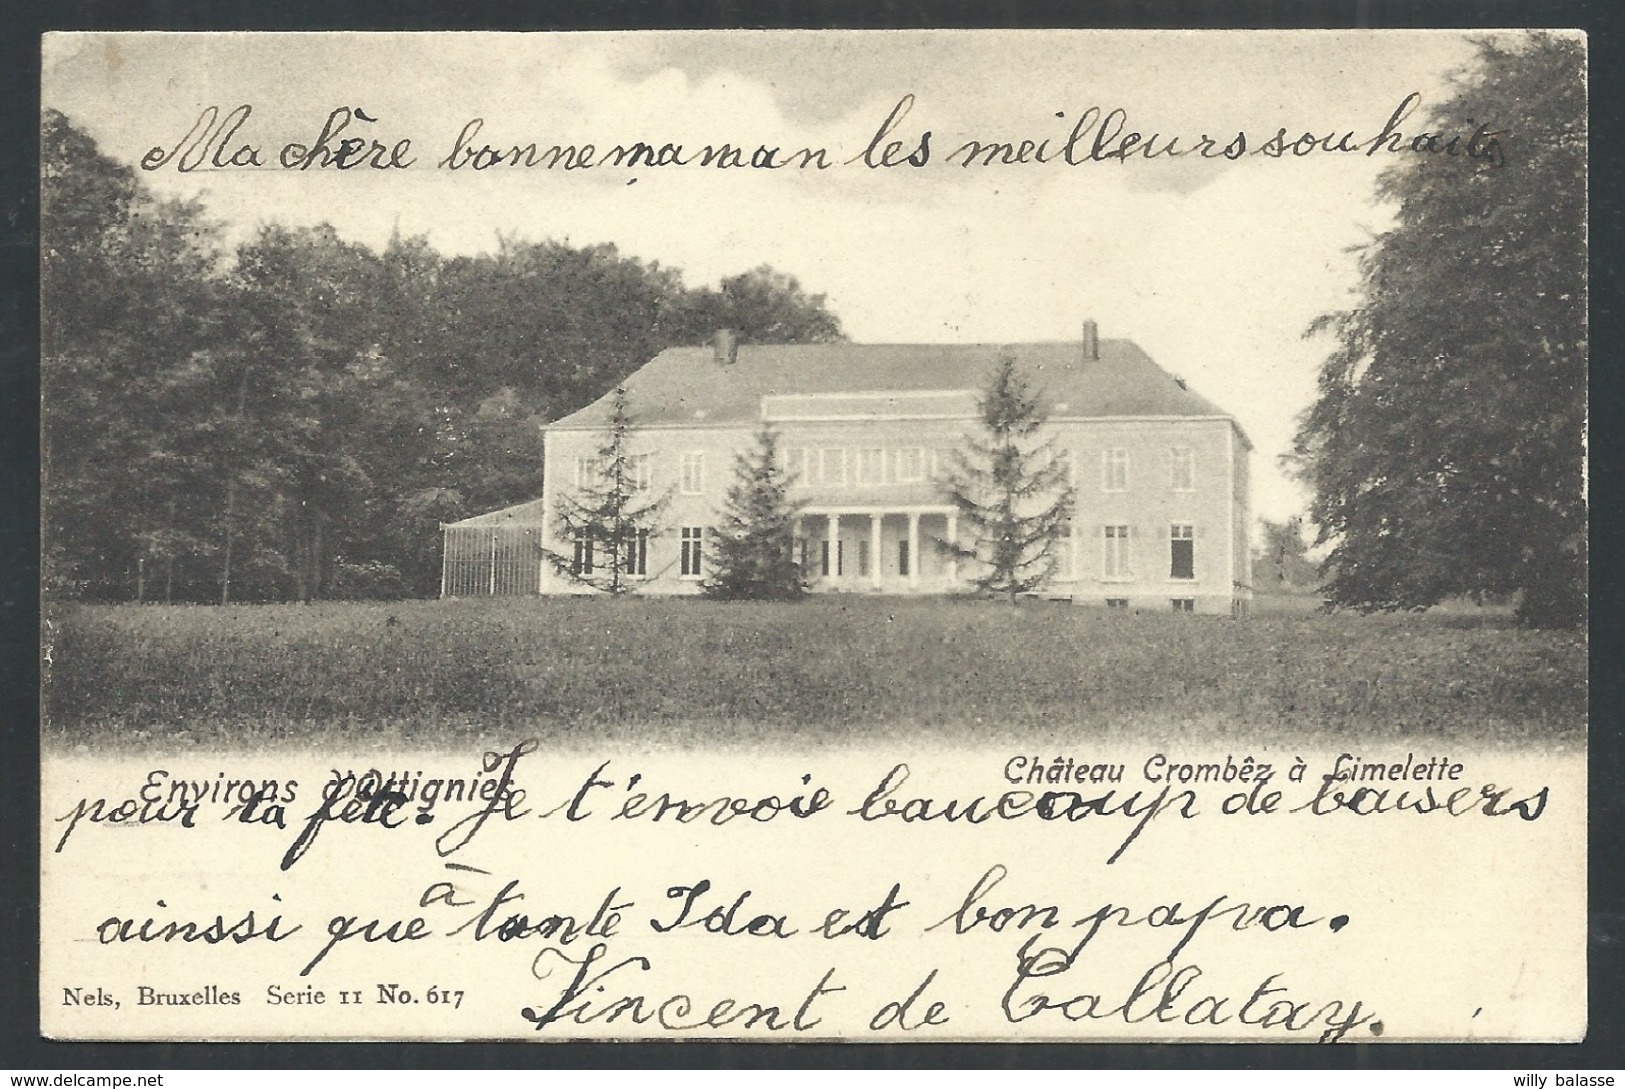 Ma chère bonnemaman les meilleurs souhaits
Environs d'Ottignies
Château Crombêz à Limelette
pour ta fête. Je t'envoie baucoup de baisers
ainssi que à tante Ida et bon papa.
Nels, Bruxelles Serie 11 No. 617
Vincent de Callatay.
willy balasse